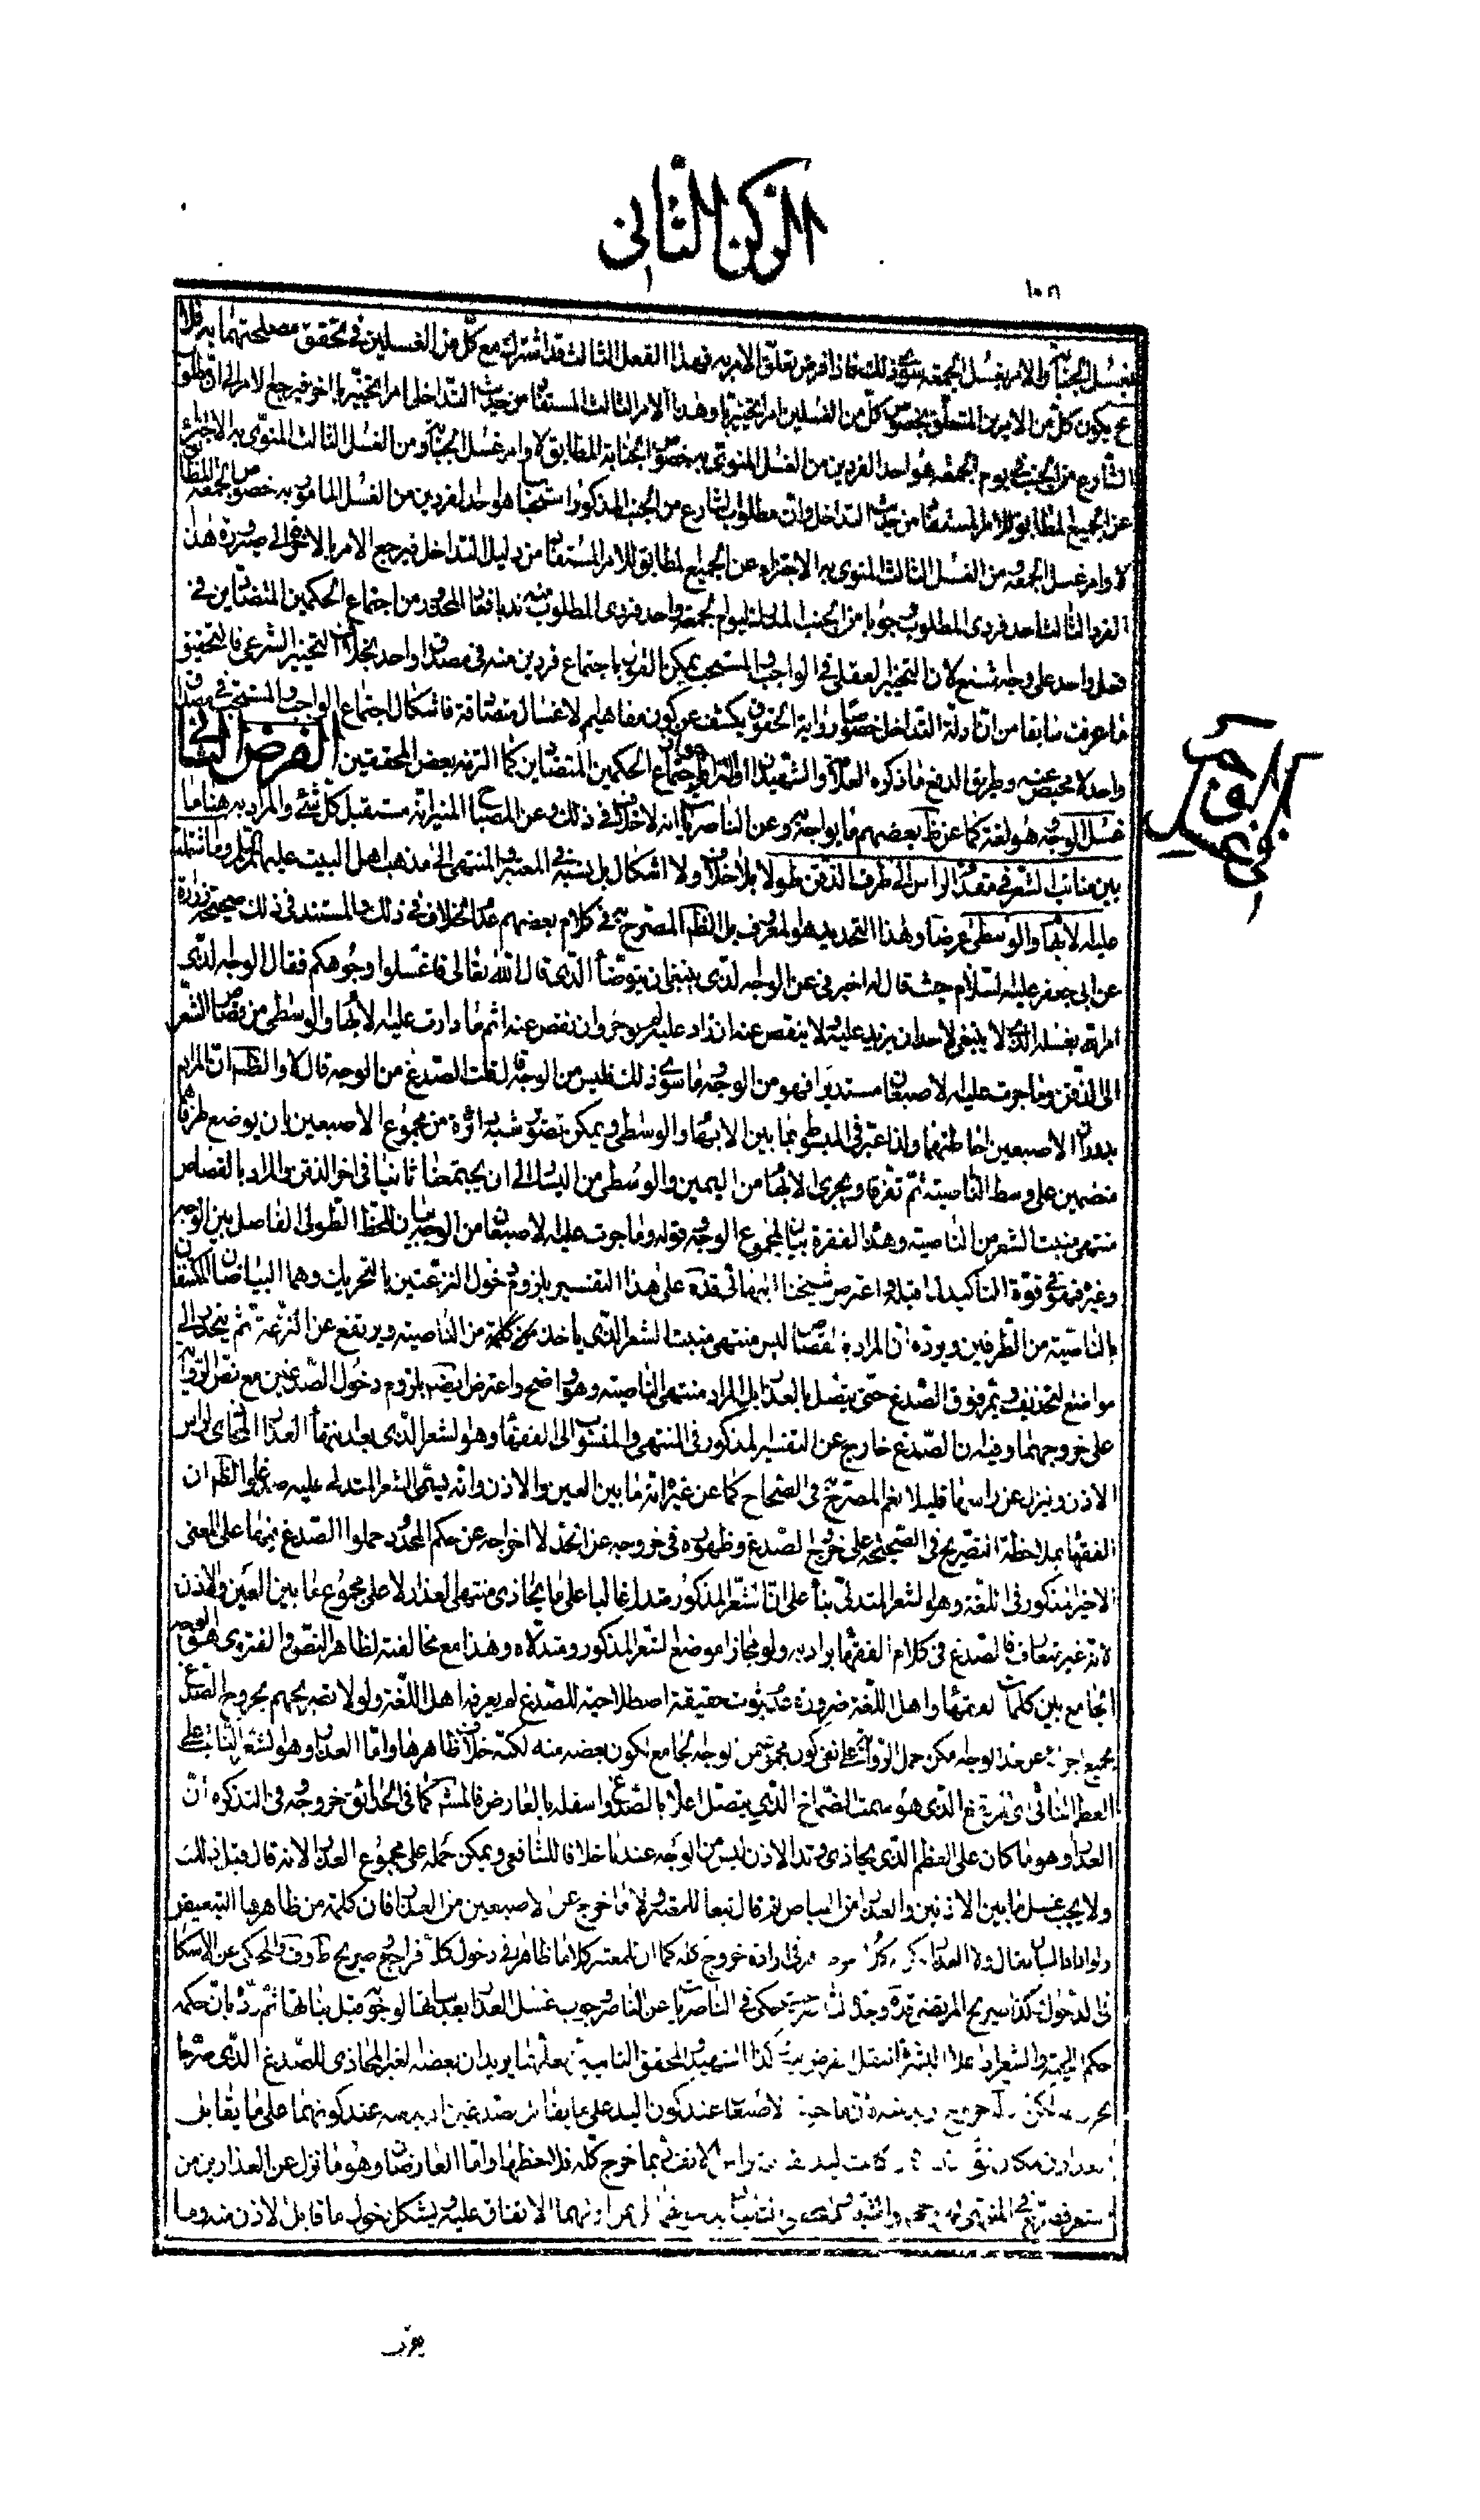 الركن الثاني
١٠٨
بغسل الجنابة والامر بغسل الجمعة سوى ذلك فاذا فرض تعلق الامر به فهذا الفعل الثالث قد اشترك مع كل من الغسلين في تحقق مصلحتهما به فلا
ح يكون كل من الامرين المتعلق بخصوص كل من الغسلين امرا تخييريا وهذا الامر الثالث المستفاد من حديث التداخل امرا تخييريا اخر فيرجع الامر الى ان مطلوب
الشارع من الجنب في يوم الجمعة هو احد الفردين من الغسل المنوي به خصوص الجنابة المطابق لاوامر غسل الجنابة ومن الغسل الثالث المنوي به الاجتزاء
عن الجميع المطابق للامر المستفاد من حديث التداخل وان مطلوب الشارع من الجنب المذكور استحبابا هو احد الفردين من الغسل المامور به خصوص الجمعة المطابق
لاوامر غسل الجمعة ومن الغسل الثالث المنوي به الاجتزاء عن الجميع المطابق للامر المستفاد من دليل التداخل فيرجع الامر بالاخرة الى صيرورة هذا
الفرد الثالث احد فردي المطلوب وجوبا من الجنب المدرك ليوم الجمعة واحد فردي المطلوب منه ندبا فعاد المحذور من اجتماع الحكمين المتضادين في
فعل واحد على وجه شنع لان التخيير العقلي في الواجب والمستحب يمكن القول باجتماع فردين منه في مصداق واحد بخلاف التخيير الشرعي فالتحقيق
ما عرفت سابقا من ان ادلة التداخل خصوصا رواية الحقوق يكشف عن كون مفاهيم الاغسال متصادقة فاشكال اجتماع الواجب والمستحب في مصداق
واحد لا محيص عنه وطريق الدفع ما ذكره العلامة والشهيد او التزام جواز اجتماع الحكمين المتضادين كما التزمه بعض المحققين الفرض الثاني
غسل الوجه هو لغة كما عن ظاهر بعضهم ما يواجه به وعن الناصريات انه لا خلاف في ذلك وعن المصباح المنير انه مستقبل كل شئ والمراد به هنا ما
بين منابت الشعر في مقدم الراس الى طرف الذقن طولا بلا خلاف ولا اشكال بل نسبه في المعتبر والمنتهى الى مذهب اهل البيت عليهم السلام وما اشتملت
عليه الابهام والوسطى عرضا وهذا التحديد هو المعروف بل الظ المصرح به في كلام بعضهم عدم الخلاف في ذلك والمستند في ذلك صحيحة زرارة
عن ابي جعفر عليه السلام حيث قال له اخبرني عن الوجه الذي ينبغي ان يتوضأ الذي قال الله تعالى فاغسلوا وجوهكم فقال الوجه الذي
امر الله بغسله الذي لا ينبغي لاحد ان يزيد عليه ولا ينقص عنه ان زاد عليه لم يوجر وان نقص عنه اثم ما دارت عليه الابهام والوسطى من قصاص الشعر
الى الذقن وما جرت عليه الاصبعان مستديرا فهو من الوجه وما سوى ذلك فليس من الوجه قلت الصدغ من الوجه قال لا والظ ان المراد
بدوران الاصبعين احاطتهما ولذا عبر في المبسوط بما بين الابهام والوسطى ويمكن تصور شبه دائرة من مجموع الاصبعين بان يوضع طرفاهما
منضمين على وسط الناصية ثم تفرقا ويجري الابهام من اليمين والوسطى من اليسار الى ان يجتمعا ثانيا في اخر الذقن والمراد بالقصاص
منتهى منبت الشعر من الناصية وهذه الفقرة بيان لمجموع الوجه وقوله وما جرت عليه الاصبعان من الوجه بيان للخط الطولي الفاصل بين الوجه
وغيره فهو في قوة التاكيد لما قبله واعترض شيخنا البهائي قده على هذا التفسير بلزوم دخول النزعتين بالتحريك وهما البياضان المكتنفان
بالناصية من الطرفين ويرده ان المراد بالقصاص ليس منتهى منبت الشعر الذي ياخذ من كلمة من الناصية ويرتفع عن النزعة ثم ينحدر الى
مواضع التحذيف ويمر فوق الصدغ حتى يتصل بالعذار بل المراد منتهى الناصية وهو واضح واعترض ايضا بلزوم دخول الصدغين مع نص الرواية
على خروجهما وفيه ان الصدغ خارج عن التفسير المذكور في المنتهى والمنسوب الى الفقهاء وهو الشعر الذي بعد انتهاء العذار المحاذي لراس
الاذن وينزل عن راسها قليلا نعم المصرح به في الصحاح كما عن غيره انه ما بين العين والاذن وانه يسمى الشعر المتدلي عليه صدغا والظ ان
الفقهاء بملاحظة التصريح في الصحيحة على خروج الصدغ وظهوره في خروجه عن الحد لا اخراجه عن حكم المحدود حملوا الصدغ فيها على المعنى
الاخير المذكور في اللغة وهو الشعر المتدلي بناء على ان الشعر المذكور متدل غالبا على ما يحاذي منتهى العذار لا على مجموع ما بين العين والاذن
لانه غير متعارف فالصدغ في كلام الفقهاء يراد به ولو مجازا موضع الشعر المذكور ومتدلاه وهذا مع مخالفته لظاهر النص والفتوى هو الوجه
الجامع بين كلمات الفقهاء واهل اللغة ضرورة عدم ثبوت حقيقة اصطلاحية للصدغ لم يعرفه اهل اللغة ولولا تصريحهم بخروج الصدغ
بجميع اجزائه عن حد الوجه امكن حمل الرواية على نفي كون مجموعه من الوجه الجامع لكون بعضه منه لكنه خلاف ظاهرها واما العذار وهو الشعر النابت على
العظم الناتي الذي هو سمت الصماخ الذي يتصل اعلاه بالصدغ واسفله بالعارض فالمشهور كما في الحدائق خروجه وفي التذكرة ان
العذار وهو ما كان على العظم الذي يحاذي وتد الاذن ليس من الوجه عندنا خلافا للشافعي ويمكن حمله على مجموع العذار لانه قال قبل ذلك
ولا يجب غسل ما بين الاذنين والعذار من البياض ثم قال تبعا للمعتبر ولا ما خرج عن الاصبعين من العذار فان كلمة من ظاهرها التبعيض
في ارادة خروج كله كما ان للمعتبر كلاما ظاهر في دخول كله فراجع صريح والمحكي عن الاسكافي
في الدخول حكى في الناصريات عن الناصر وجوب غسل العذار بعد نباتها لوجوبه قبل نباتها ثم رده بان حكمه
حكم اللحية والشهيد والمحقق الثاني يريدان بعضه الغير المحاذي للصدغ الذي صرحا
بخروجه لكن الاصبعان عند كون اليد على ما يقابل عند كونهما على ما يقابل
بما خرج كله فلاحظها واما العارضان وهو ما نزل عن العذارين من
الاتفاق عليه ويشكل دخول ما قابل الاذن منه وما
الفرض الثاني